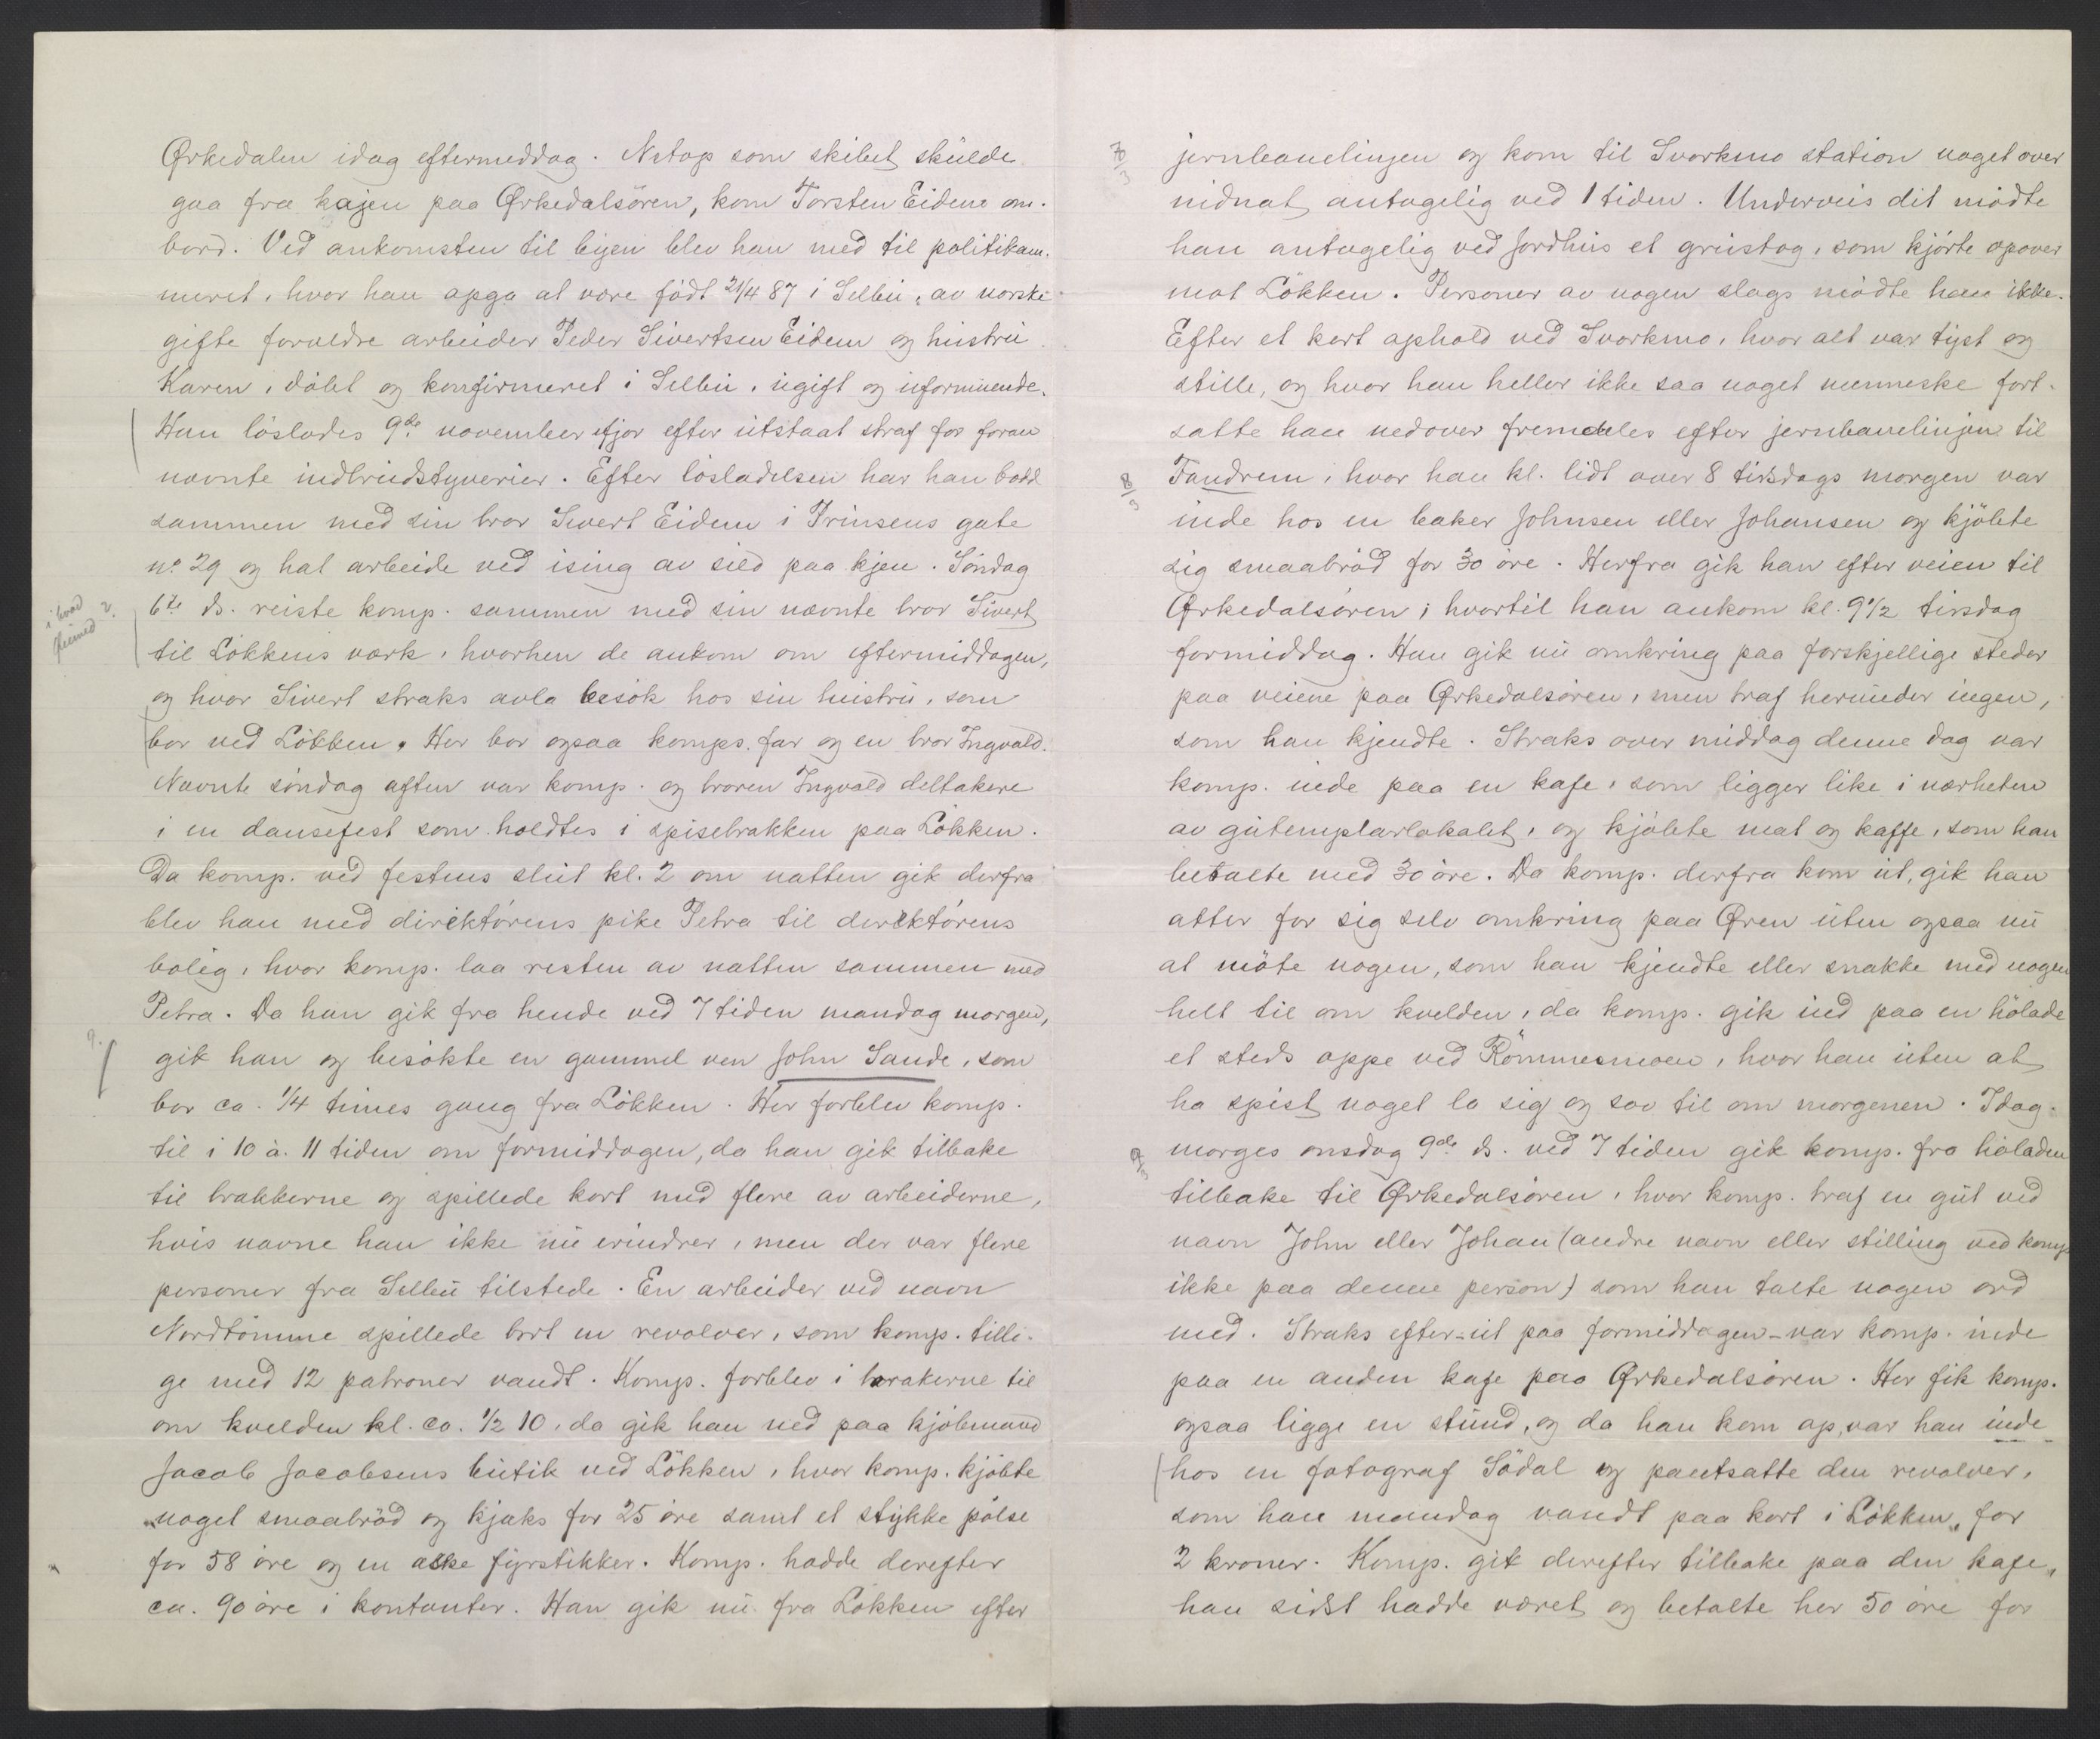 Ørkedalen idag eftermeddag. Netop som skibet skulde
gaa fra kajen paa Ørkedalsören, kom Torsten Eidem om-
bord. Ved ankomsten til byen blev han med til politikam-
meret, hvor han opga at være födt 21/4 87 i Selbu, av norske
gifte forældre arbeider Peder Sivertsen Eidem og hustru
Karen, döbt og konfirmeret i Selbu, ugift og uformuende.
Han lösladtes 9de november ifjor efter utstaat straf for foran
nævnte indbrudstyverier. Efter lösladelsen har han bodd
sammen med sin bror Sivert Eidem i Prinsens gate
no 29 og hat arbeide ved ising av sild paa kjen. Söndag
6te ds. reiste komp. sammen med sin nævnte bror Sivert
i hvad
öiemed?
til Lökkens værk, hvorhen de ankom om eftermiddagen,
og hvor Sivert straks avla besök hos sin hustru, som
bor ved Lökken. Her bor ogsaa komps. far og en bror Ingvald.
Nævnte söndag aften var komp. og broren Ingvald deltakere
i en dansefest som holdtes i spisebrakken paa Lökken.
Da komp. ved festens slut kl. 2 om natten gik derfra
blev han med direktörens pike Petra til direktörens
bolig, hvor komp. laa resten av natten sammen med
Petra. Da han gik fra hende ved 7 tiden mandag morgen,
gik han og besökte en gammel ven John Sande, som
bor ca. 1/4 times gang fra Lökken. Her forblev komp.
til i 10 à 11 tiden om formiddagen, da han gik tilbake
til brakkerne og spillede kort med flere av arbeiderne,
hvis navne han ikke nu erindrer, men der var flere
personer fra Selbu tilstede. En arbeider ved navn
Nordtömme spillede bort en revolver, som komp. tilli-
ge med 12 patroner vandt. Komp. forblev i brakerne til
om kvelden kl. ca. 1/2 10, da gik han ned paa kjöbmand
Jacob Jacobsens butik ved Lökken, hvor komp. kjöbte
noget smaabröd og kjaks for 25 öre samt et stykke pölse
for 58 öre og en aske fyrstikker. Komp. hadde derefter
ca. 90 öre i kontanter. Han gik nu fra Lökken efter
7/3
jernbanelinjen og kom til Svorkmo station noget over
midnat, antagelig ved 1 tiden. Underveis dit mödte
han antagelig ved Jordhus et grustog, som kjörte opover
mot Lökken. Personer av nogen slags mödte han ikke.
Efter et kort ophold ved Svorkmo, hvor alt var tyst og
stille, og hvor han heller ikke saa noget menneske fort-
satte han nedover fremdeles efter jernbanelinjen til
8/3
Fandrem, hvor han kl. lidt over 8 tirsdags morgen var
inde hos en baker Johnsen eller Johansen og kjöbte
sig smaabröd for 30 öre. Herfra gik han efter veien til
Ørkedalsören, hvortil han ankom kl. 9 1/2 tirsdag
formiddag. Han gik nu omkring paa forskjellige steder
paa veiene paa Ørkedalsören, men traf herunder ingen,
som han kjendte. Straks over middag denne dag var
komp. inde paa en kafe, som ligger like i nærheten
av gutemplarlokalet, og kjöbte mat og kaffe, som han
betalte med 30 öre. Da komp. derfra kom ut, gik han
atter for sig selv omkring paa Øren uten ogsaa nu
at möte nogen, som han kjendte eller snakke med nogen
helt til om kvelden, da komp. gik ind paa en hölade
et steds oppe ved Römmesmoen, hvor han uten at
ha spist noget la sig og sov til om morgenen. Idag-
9/3
morges onsdag 9de ds. ved 7 tiden gik komp. fra höladen
tilbake til Ørkedalsören, hvor komp. traf en gut ved
navn John eller Johan (andre navn eller stilling ved komp.
ikke paa denne person) som han talte nogen ord
med. Straks efter - ut paa formiddagen - var komp. inde
paa en anden kafe paa Ørkedalsören. Her fik komp.
ogsaa ligge en stund, og da han kom op, var han inde
hos en fotograf Södal og pantsatte den revolver,
som han mandag vandt paa kort i Lökken, for
2 kroner. Komp. gik derefter tilbake paa den kafe,
han sidst hadde været, og betalte her 50 öre for